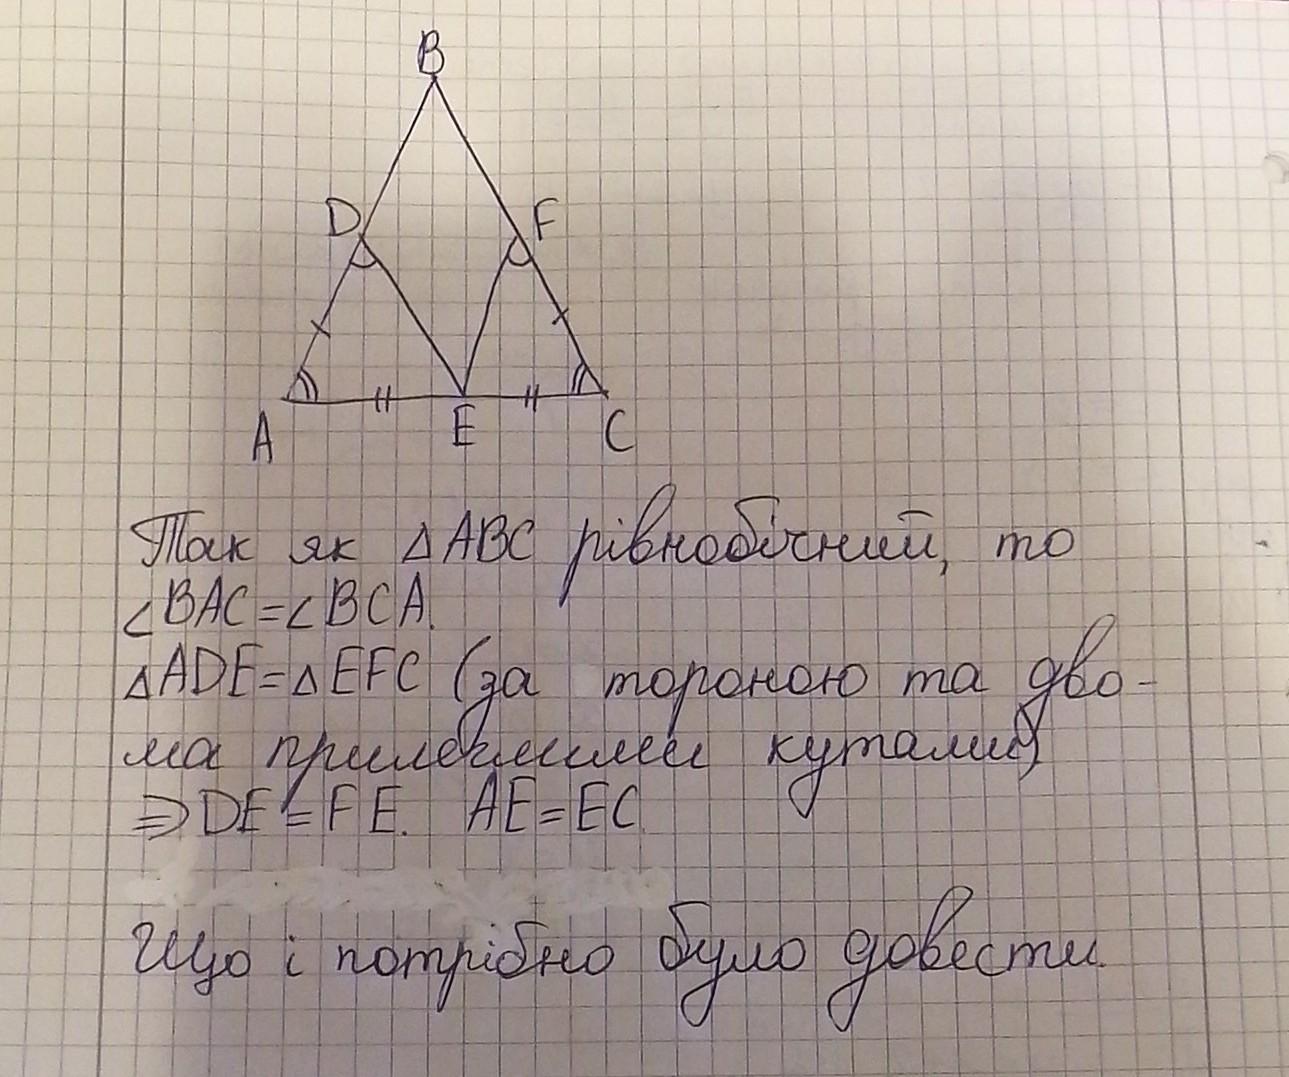 B
D F
A E C
Так як △ABC рівнобічний, то
∠BAC=∠BCA.
△ADE=△EFC (за тороною та дво-
ма прилеглими кутами)
⇒DE=FE. AE=EC.
Що і потрібно було довести.